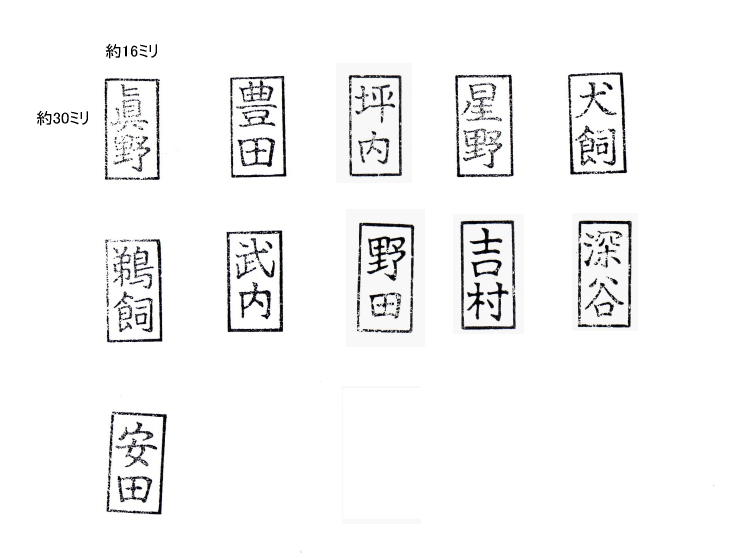 約16ミリ
約30ミリ
眞野
豊田
坪内
星野
犬飼
鵜飼
武内
野田
𠮷村
深谷
安田